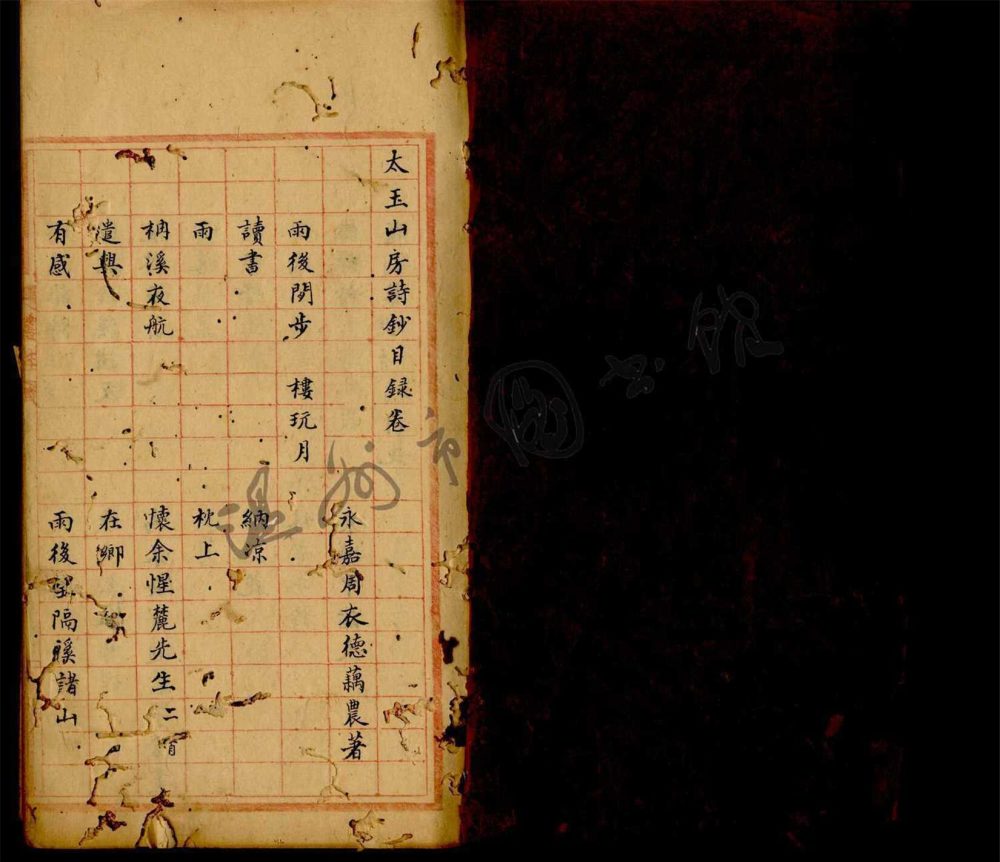 太玉山房詩鈔目録卷
永嘉周衣德藕農著
雨後閒步　樓玩月
讀書　納涼
雨　枕上
枬溪夜航　懷余惺麓先生二首
遣興　在鄉
有感　雨後望隔溪諸山
温州市圖书館